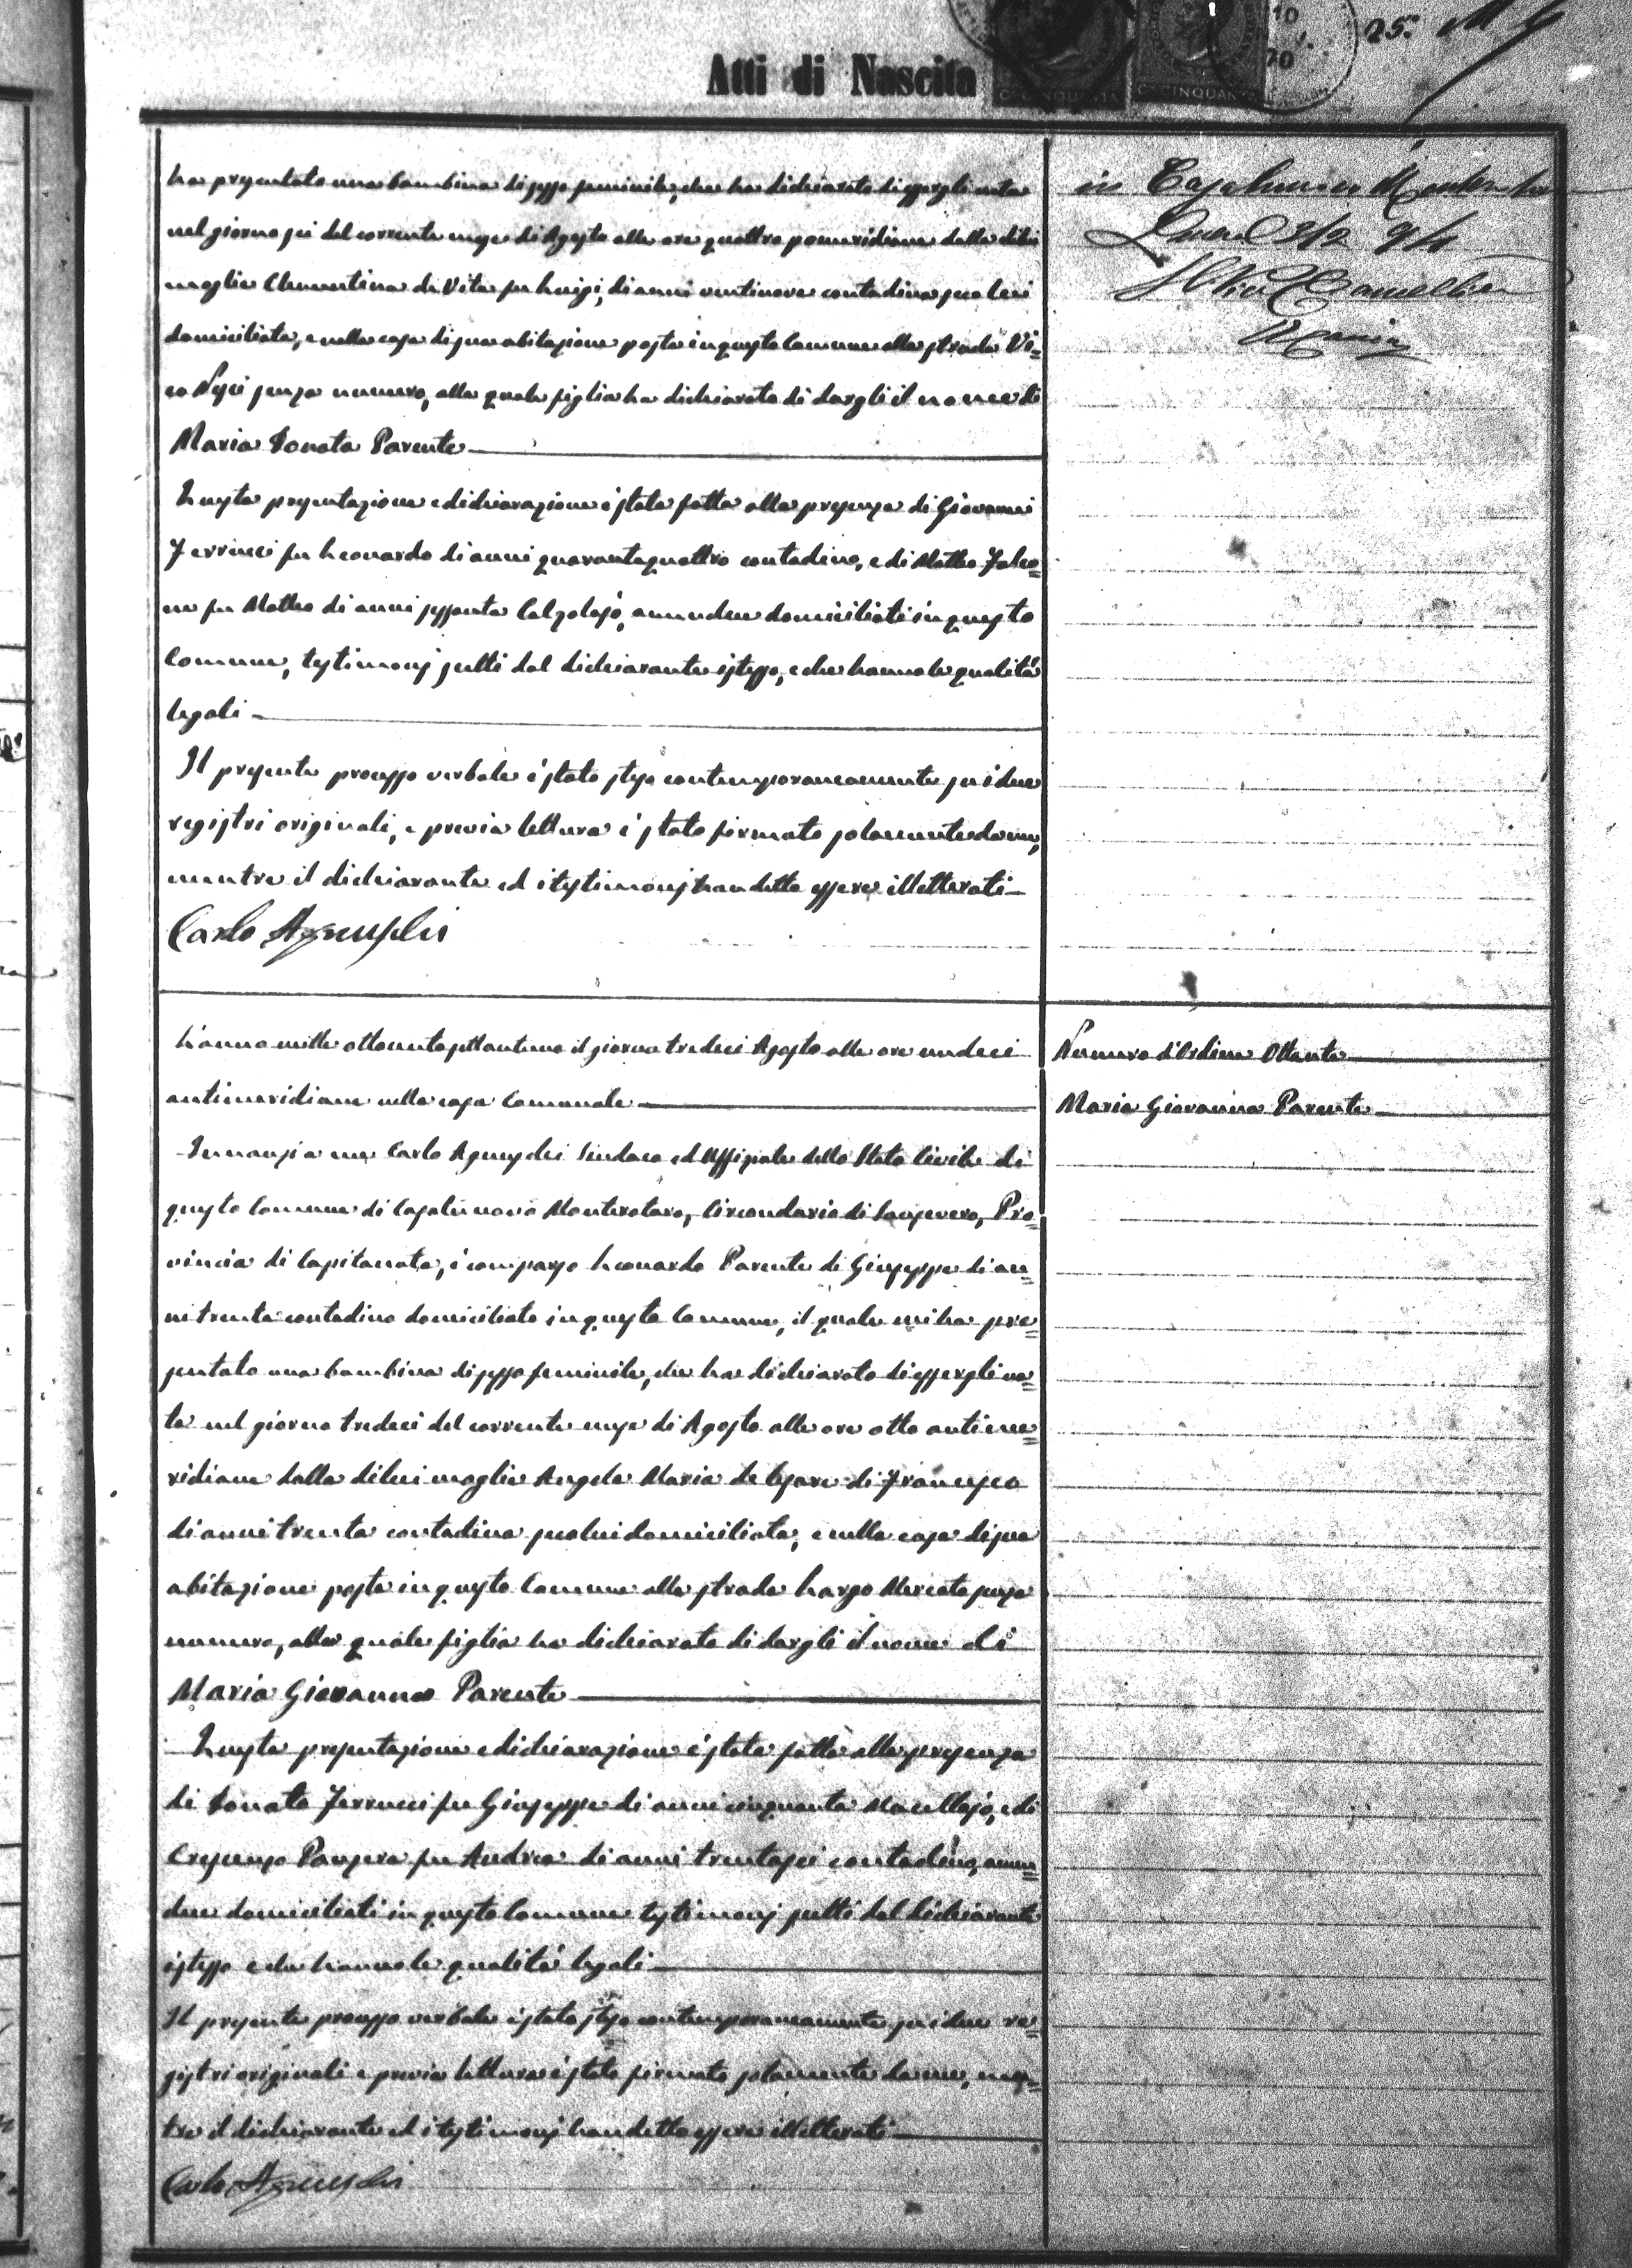 Atti di Nascita
25.
C. CINQUANTA
C. CINQUANTA
ha presentato una bambina di sesso feminile, che ha dichiarato di essergli nata
nel giorno sei del corrente mese di Agosto alle ore quattro pomeridiane dalla di lui
moglie Clementina de Vita fu Luigi, di anni ventinove contadina seco lui
domiciliata, e nella casa di sua abitazione posta in questo Comune alla strada Vi=
co senza numero, alla quale figlia ha dichiarato di dargli il nome di
Maria Donata Parente
La presentazione e dichiarazione è stata fatta alla presenza di Giovanni
Ferrucci fu Leonardo di anni quarantaquattro contadino, e di Matteo Falco=
ne fu Matteo di anni sessanta Calzolajo, amendue domiciliati in questo
Comune, testimonj scelti dal dichiarante istesso, e che hanno le qualità
legali
Il presente processo verbale è stato steso contemporaneamente su i due
registri originali, e previa lettura è stato firmato solamente da me,
mentre il dichiarante ed i testimonj han detto essere illetterati
Carlo
in Casalnuovo
L'anno mille ottocento settantuno il giorno tredici Agosto alle ore undeci
antimeridiane nella casa Comunale
Numero d'Ordine Ottanta
Maria Giovanna Parente
Innanzi a me Carlo Sindaco ed Uffiziale dello Stato Civile di
questo Comune di Casalnuovo Monterotaro, Circondario di Sansevero, Pro=
vincia di Capitanata, è comparso Leonardo Parente di Giuseppe di an=
ni trenta contadino domiciliato in questo Comune, il quale mi ha pre=
sentato una bambina di sesso feminile, che ha dichiarato di essergli na=
ta nel giorno tredeci del corrente mese di Agosto alle ore otto antime=
ridiane dalla di lui moglie Angela Maria de Cesare di Francesco
di anni trenta contadina seco lui domiciliata, e nella casa di sua
abitazione posta in questo Comune alla strada Largo Mercato senza
numero, alla quale figlia ha dichiarato di dargli il nome di
Maria Giovanna Parente
La presentazione e dichiarazione è stata fatta alla presenza
di Donato Ferrucci fu Giuseppe di anni cinquanta Macellajo, e di
Crescenzo Pansera fu Andrea di anni trentasei contadino, amen=
due domiciliati in questo Comune testimonj scelti dal dichiarante
istesso e che hanno le qualità legali
Il presente processo verbale è stato steso contemporaneamente su i due re=
gistri originali e previa lettura è stato firmato solamente da me, men=
tre il dichiarante ed i testimonj han detto essere illetterati
Carlo